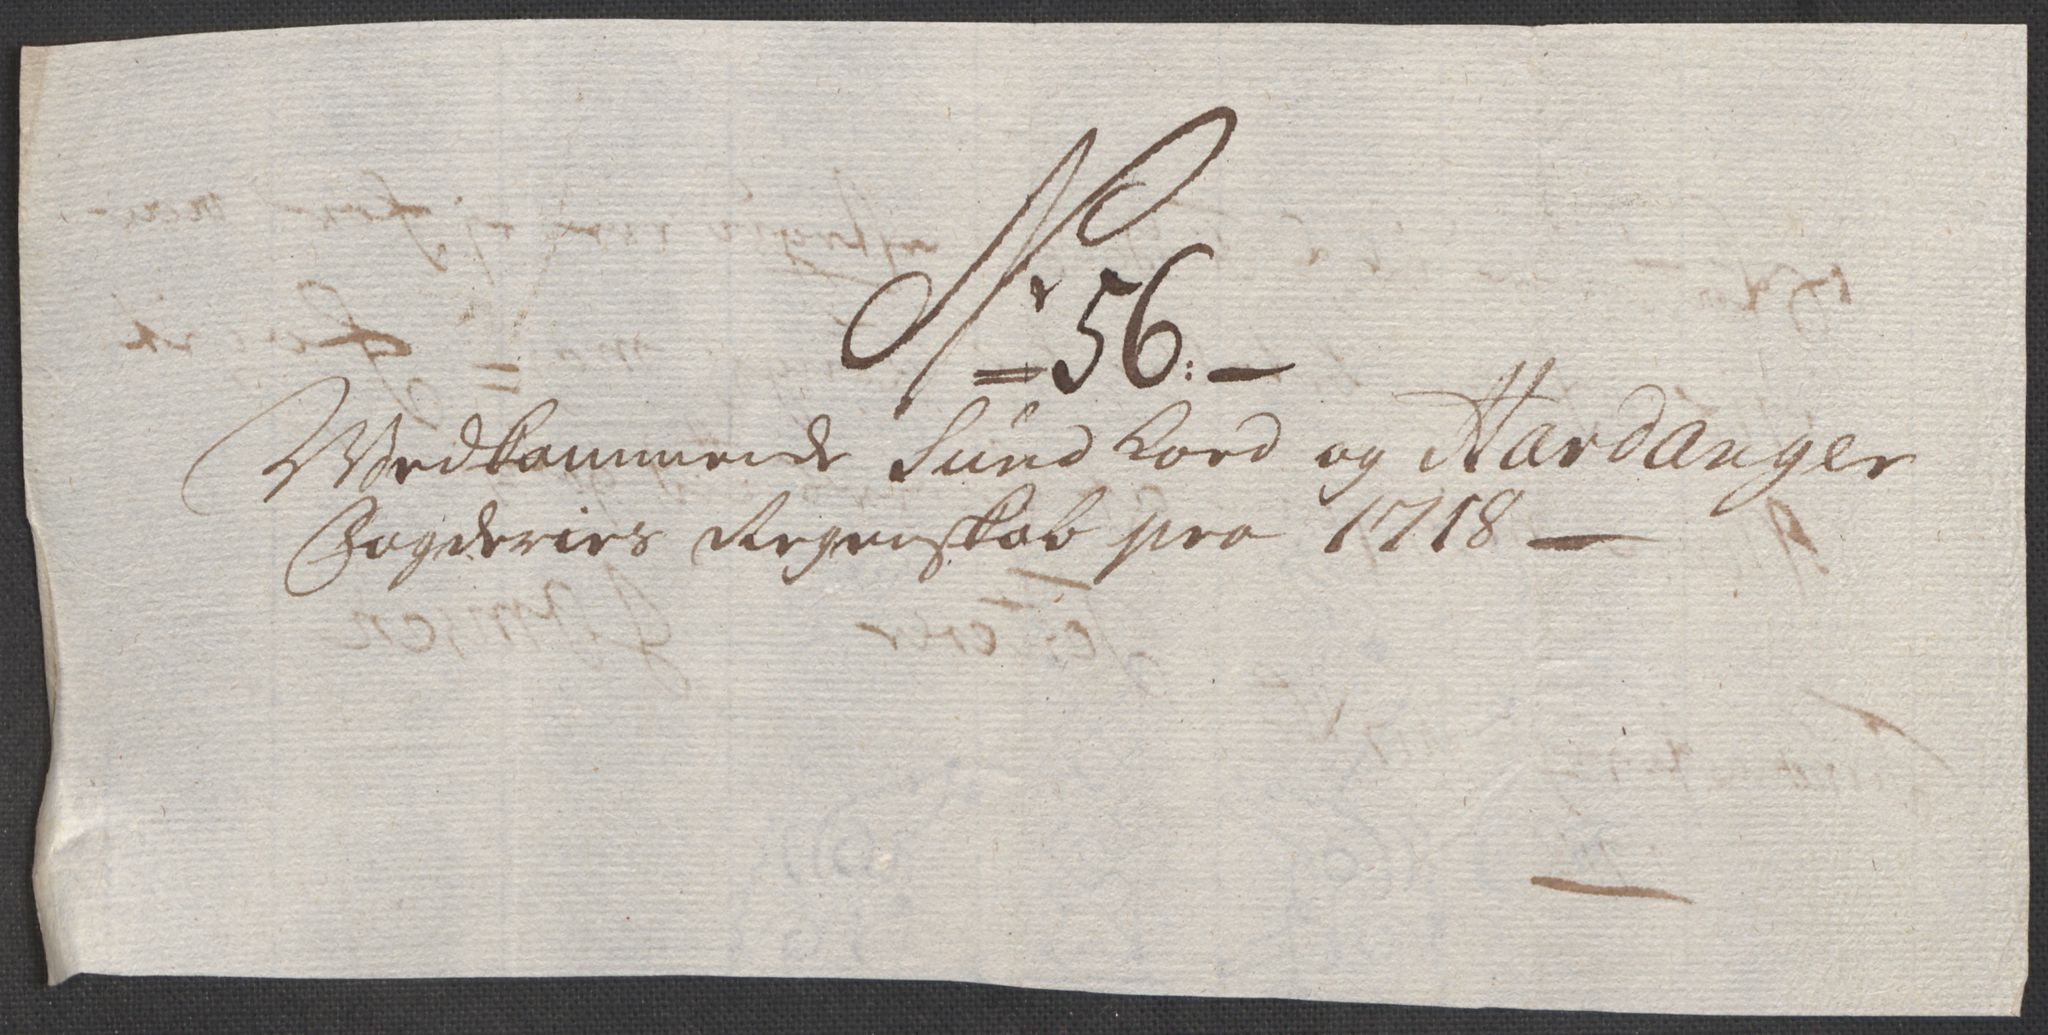 Nr 56.
Wedkommende Sund Hord og Hardanger
Fogderies Regenskab pro 1718